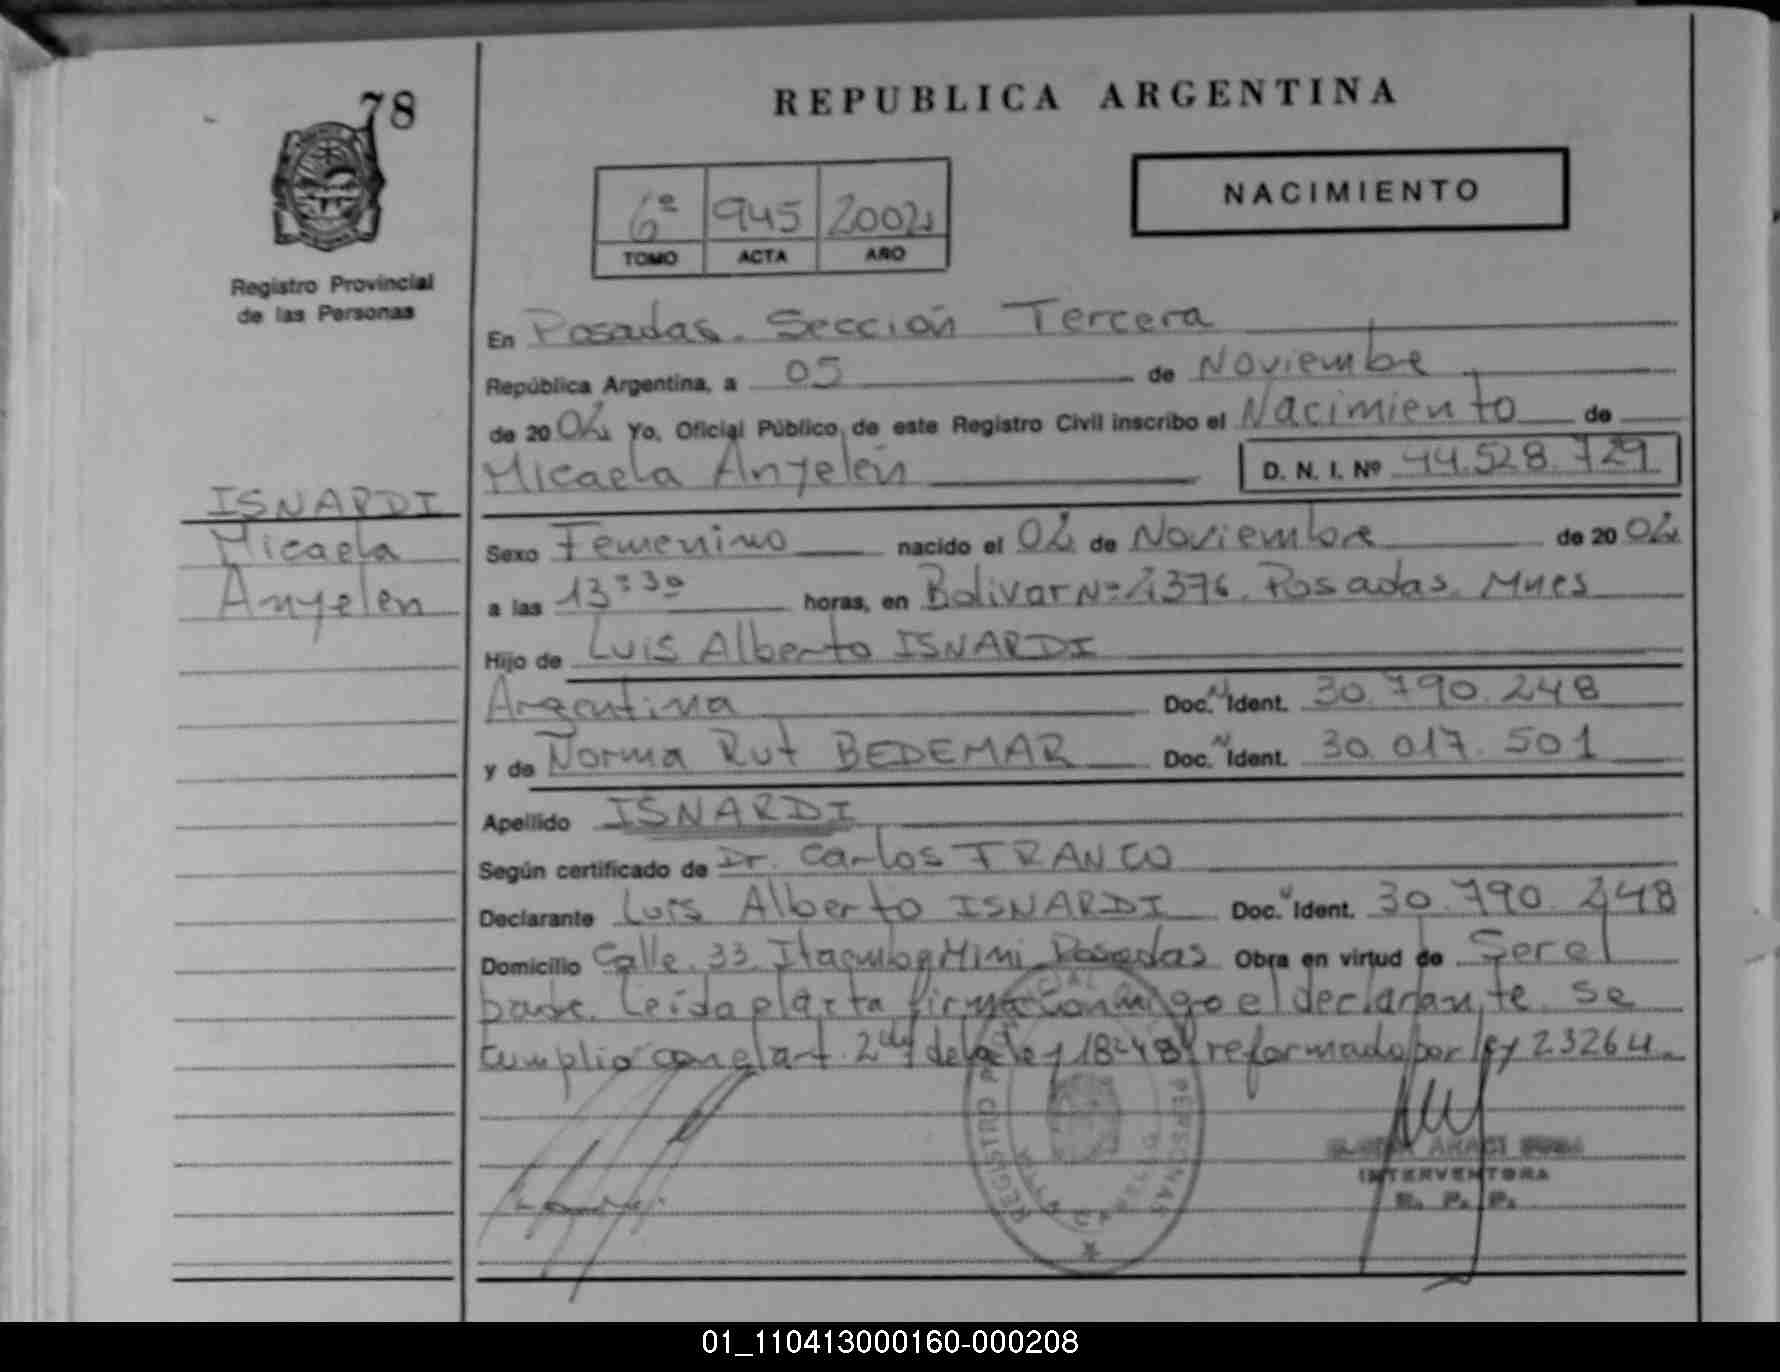 78
REPUBLICA ARGENTINA
NACIMIENTO
6º 945 2002
TOMO ACTA AÑO
Registro Provincial
de las Personas
En Posadas. Sección Tercera
República Argentina, a 05 de Noviembre
de 20 02 Yo, Oficial Público, de este Registro Civil inscribo el Nacimiento de
Micaela Anyelén D. N. I. Nº 44.528.729
ISNARDI
Micaela
Anyelen
Sexo Femenino nacido el 02 de Noviembre de 20 02
a las 13:30 horas, en Bolivar Nº 2376. Posadas. Mnes
Hijo de Luis Alberto ISNARDI
Argentina Doc. N Ident. 30.790.248
y de Norma Rut BEDEMAR Doc. N Ident. 30.017.501
Apellido ISNARDI
Según certificado de Dr. Carlos FRANCO
Declarante Luis Alberto ISNARDI Doc. N Ident. 30.790.248
Domicilio Calle. 33. Mini Posadas Obra en virtud de Ser el
padre. Leida el acta firma conmigo el declarante. Se
cumplio con el art. de la ley 18248 reformado por ley 23264.
REGISTRO PERSONAS
ARACI
INTERVENTORA
R. P. P.
01_110413000160-000208